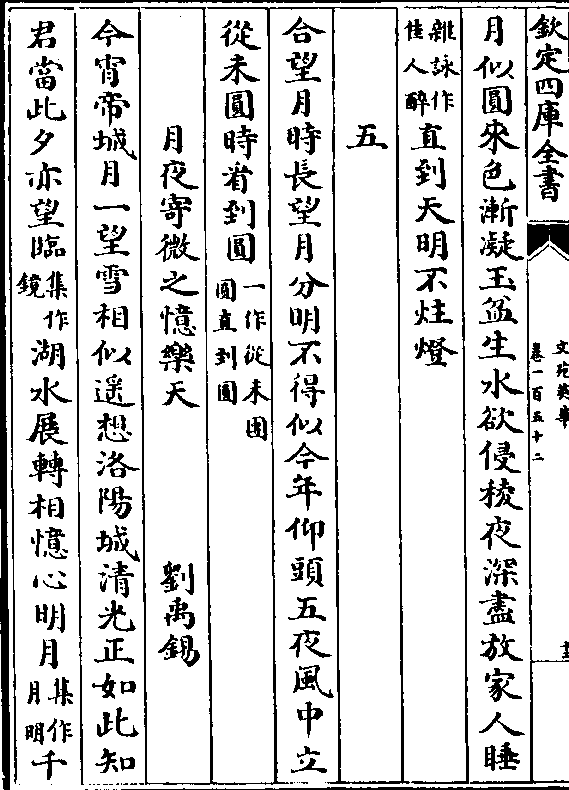 欽定四庫全書
文苑英華
卷一百五十二
月似圓來色漸凝玉盆生水欲侵稜夜深盡放家人睡
雜詠作佳人醉直到天明不炷燈
五
合望月時長望月分明不得似今年仰頭五夜風中立
從未圓時看到圓一作從未團圓直到圓
月夜寄微之憶樂天　劉禹錫
今宵帝城月一望雪相似遥想洛陽城清光正如此知
君當此夕亦望臨集作鏡湖水展轉相憶心明月集作月明千